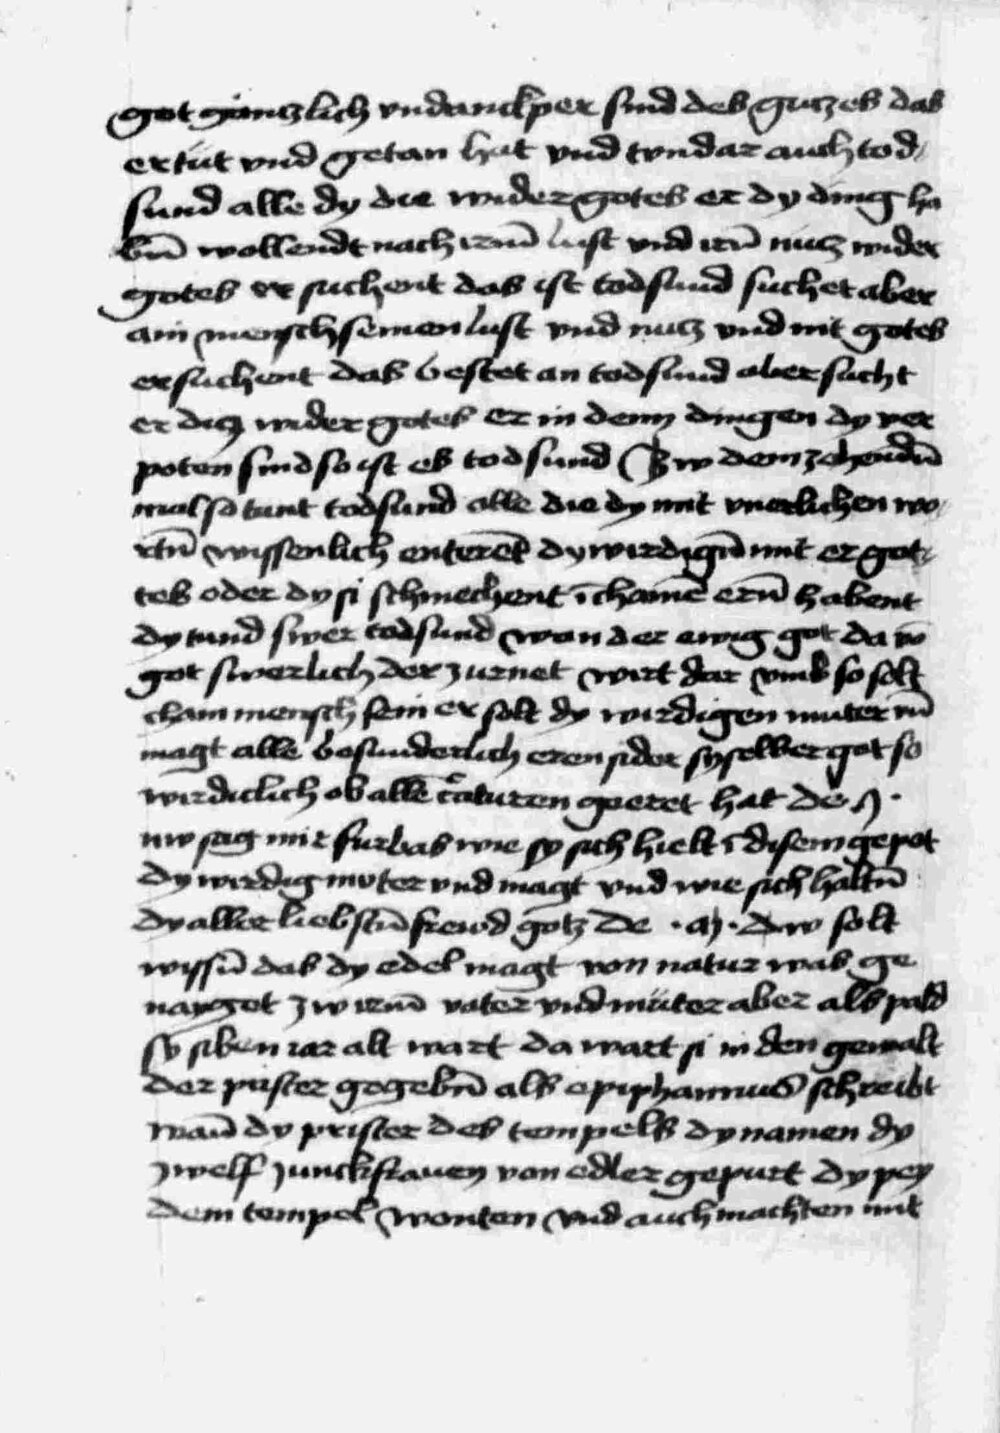 got gäntzlich vndanckper sind des gutz es das
er tüt vnd getan hat vnd tundar auch tod/
sund alle dy die wider gotes er dy ding ha
bn̄ wollendt nach irm̄ lust vnd irn̄ nutz wider
gotes er suchent das ist todsund suchet aber
ain mensch seinen lust vnd nutz vnd nit gotes
er suchent das bestet an todsund aber sucht
er dicz wider gotes er in denn dingen dy ver
poten sind so ist es todsund Zw dem zehendn̄
mal so tunt todsund alle die dy mit vnerlichen wo/
rtn̄ wissenlich enterēt dy wirdign̄ mit er got/
tes oder dy si schmechent ī chainē ern̄ habent
dy tund swer todsund wan der ewig got da vō
got swerlich der zurnet wirt dar vmb so solt
chain mensch sein er solt dy wirdigen muter vn̄
magt alle besunderlich eren sider sy selber got so
wirdiclich ob allē creaturen geeret hat De J ·
nw sag mir furbas wie sy sich hielt ī disem gepot
dy wirdig muter vnd magt vnd wie sich haltn̄
dy aller liebstn̄ frewd gotz De · M · Dw solt
wissn̄ das dy edel magt von natur was ge
nayget zw irm̄ vater vnd müter aber als pald
sy siben iar alt wart da wart si in den gewalt
der prister gegebn̄ als epiphannius schreibt
wan̄ dy prister des tempels dy namen dy
zwelf junckfrawen von edler gepurt dy pey
dem tempel wonten vnd auch machten mit